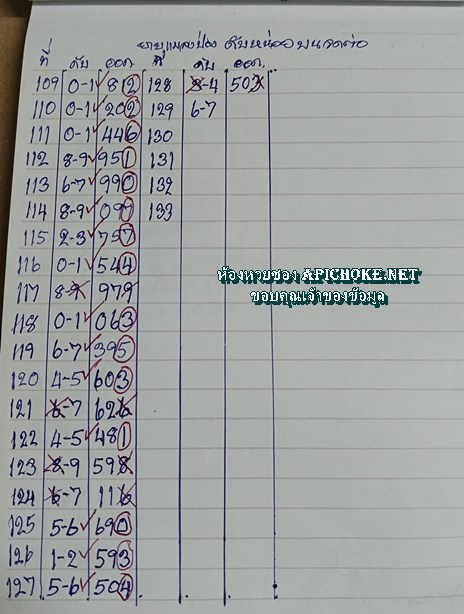 ที่ ดับ ออก ที่ ดับ ออก.
109 0-1 812 128 3-4 503
110 0-1 202 129 6-7
111 0-1 446 130
112 8-9 951 131
113 6-7 990 132
114 8-9 097 133
115 2-3 757
116 0-1 544
ห้องหวยซอง APICHOKE.NET
ขอบคุณเจ้าของข้อมูล
117 8-9 979
118 0-1 063
119 6-7 395
120 4-5 603
121 6-7 626
122 4-5 481
123 8-9 598
124 6-7 116
125 5-6 690
126 1-2 593
127 5-6 504